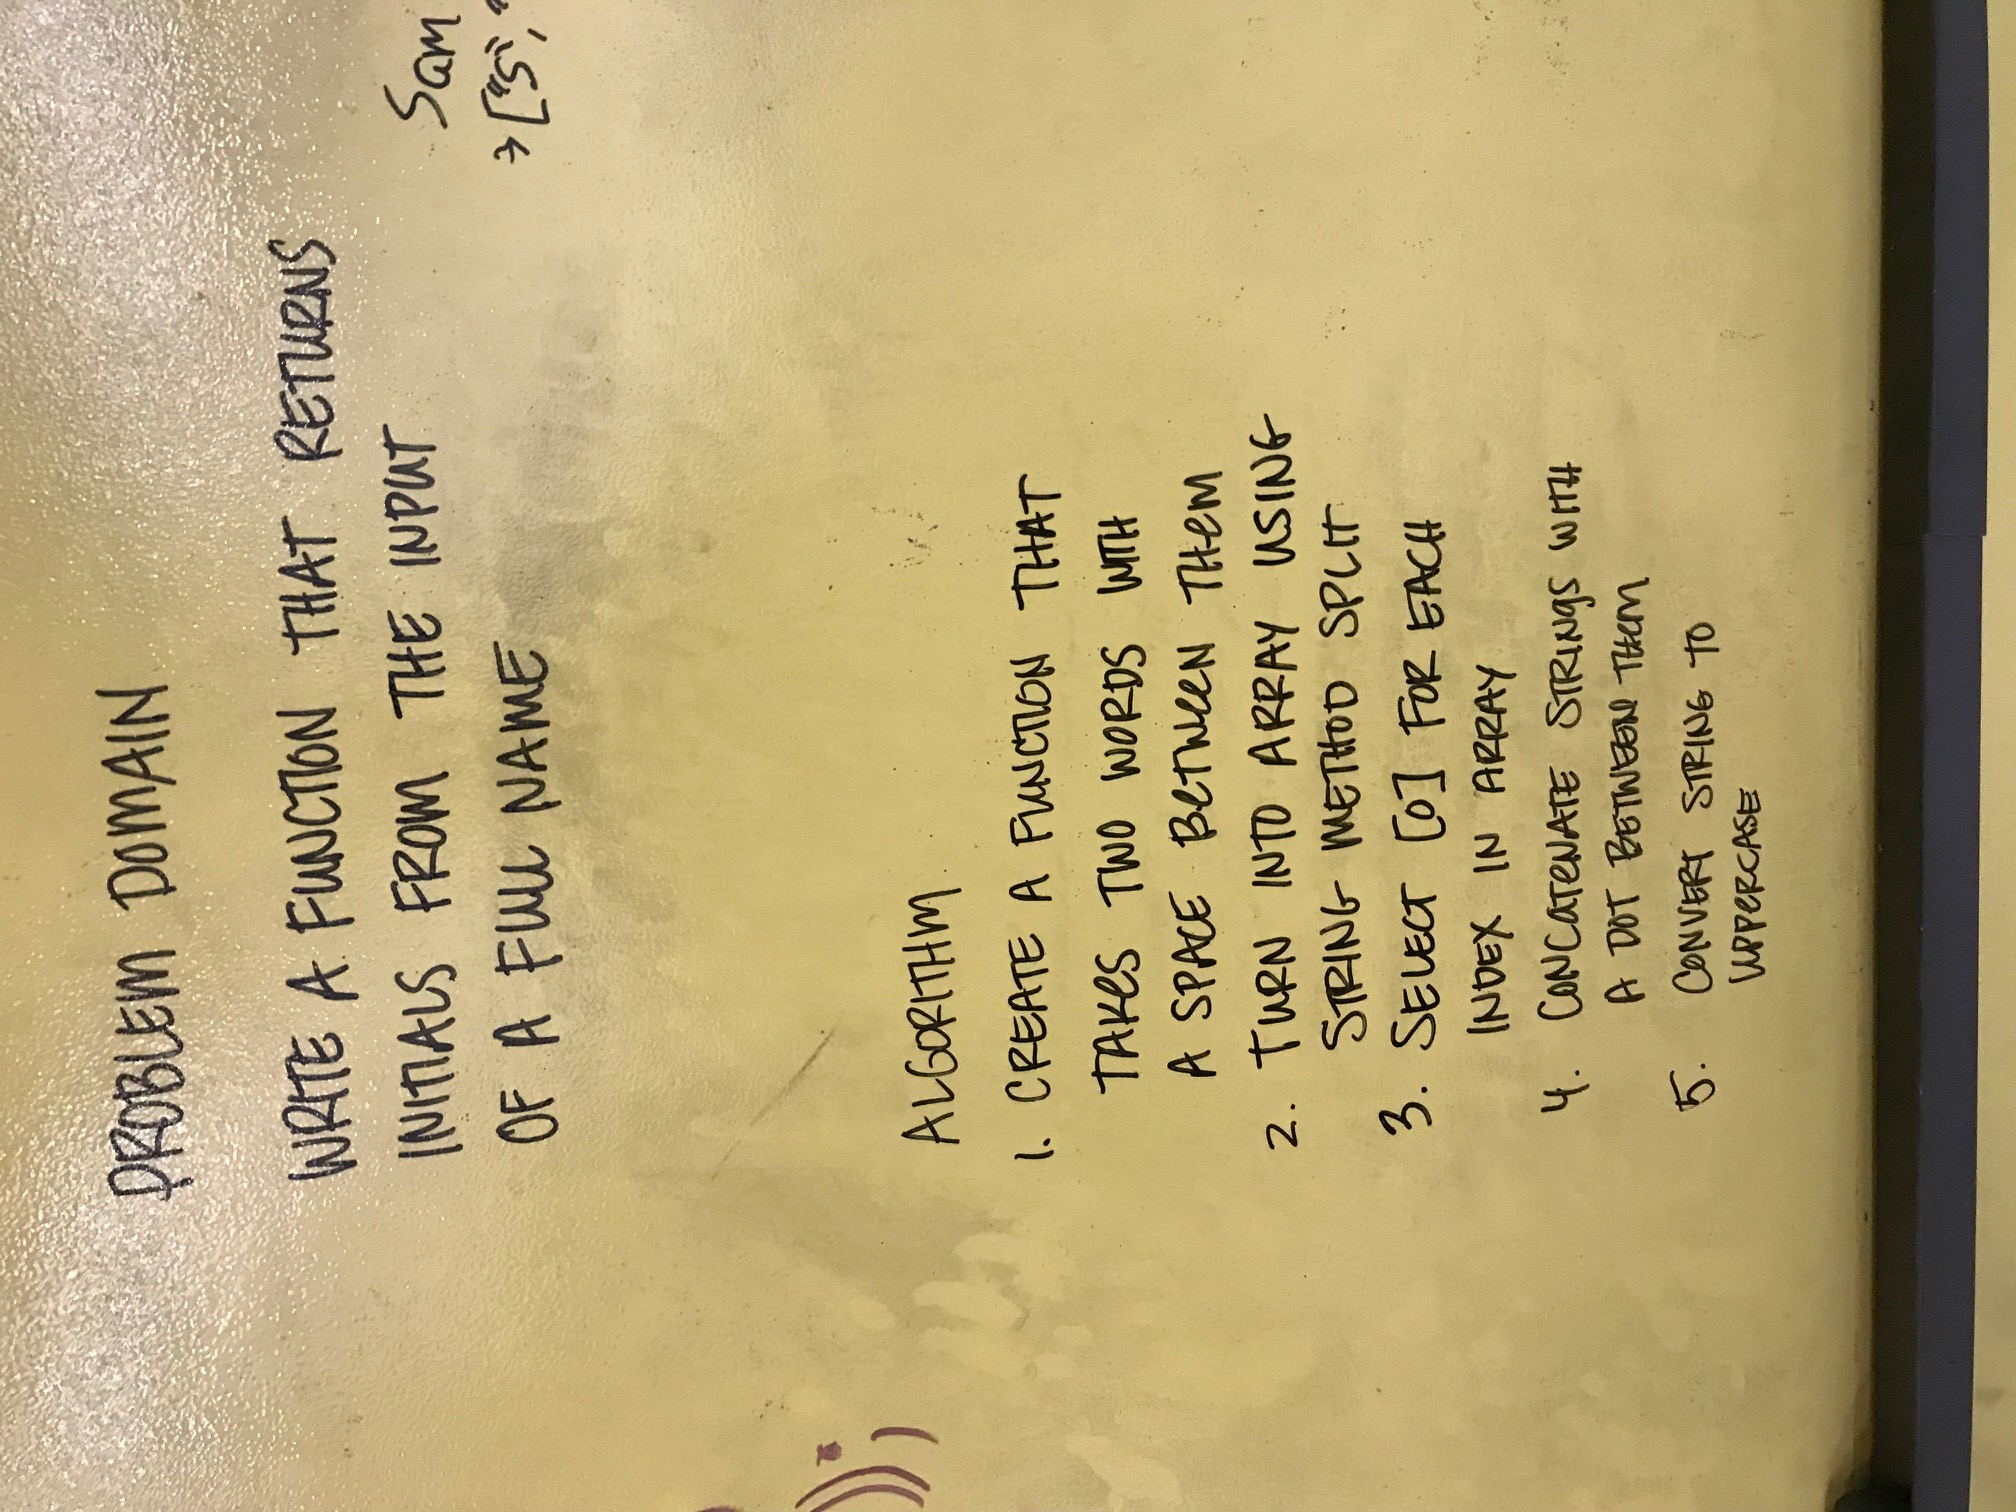 PROBLEM DOMAIN
WRITE A FUNCTION THAT RETURNS
INITIALS FROM THE INPUT
OF A FULL NAME
Sam
→ ["S", "
));
ALGORITHM
1. CREATE A FUNCTION THAT
TAKES TWO WORDS WITH
A SPACE BETWEEN THEM
2. TURN INTO ARRAY USING
STRING METHOD SPLIT
3. SELECT [0] FOR EACH
INDEX IN ARRAY
4. CONCATENATE STRINGS WITH
A DOT BETWEEN THEM
5. CONVERT STRING TO
UPPERCASE